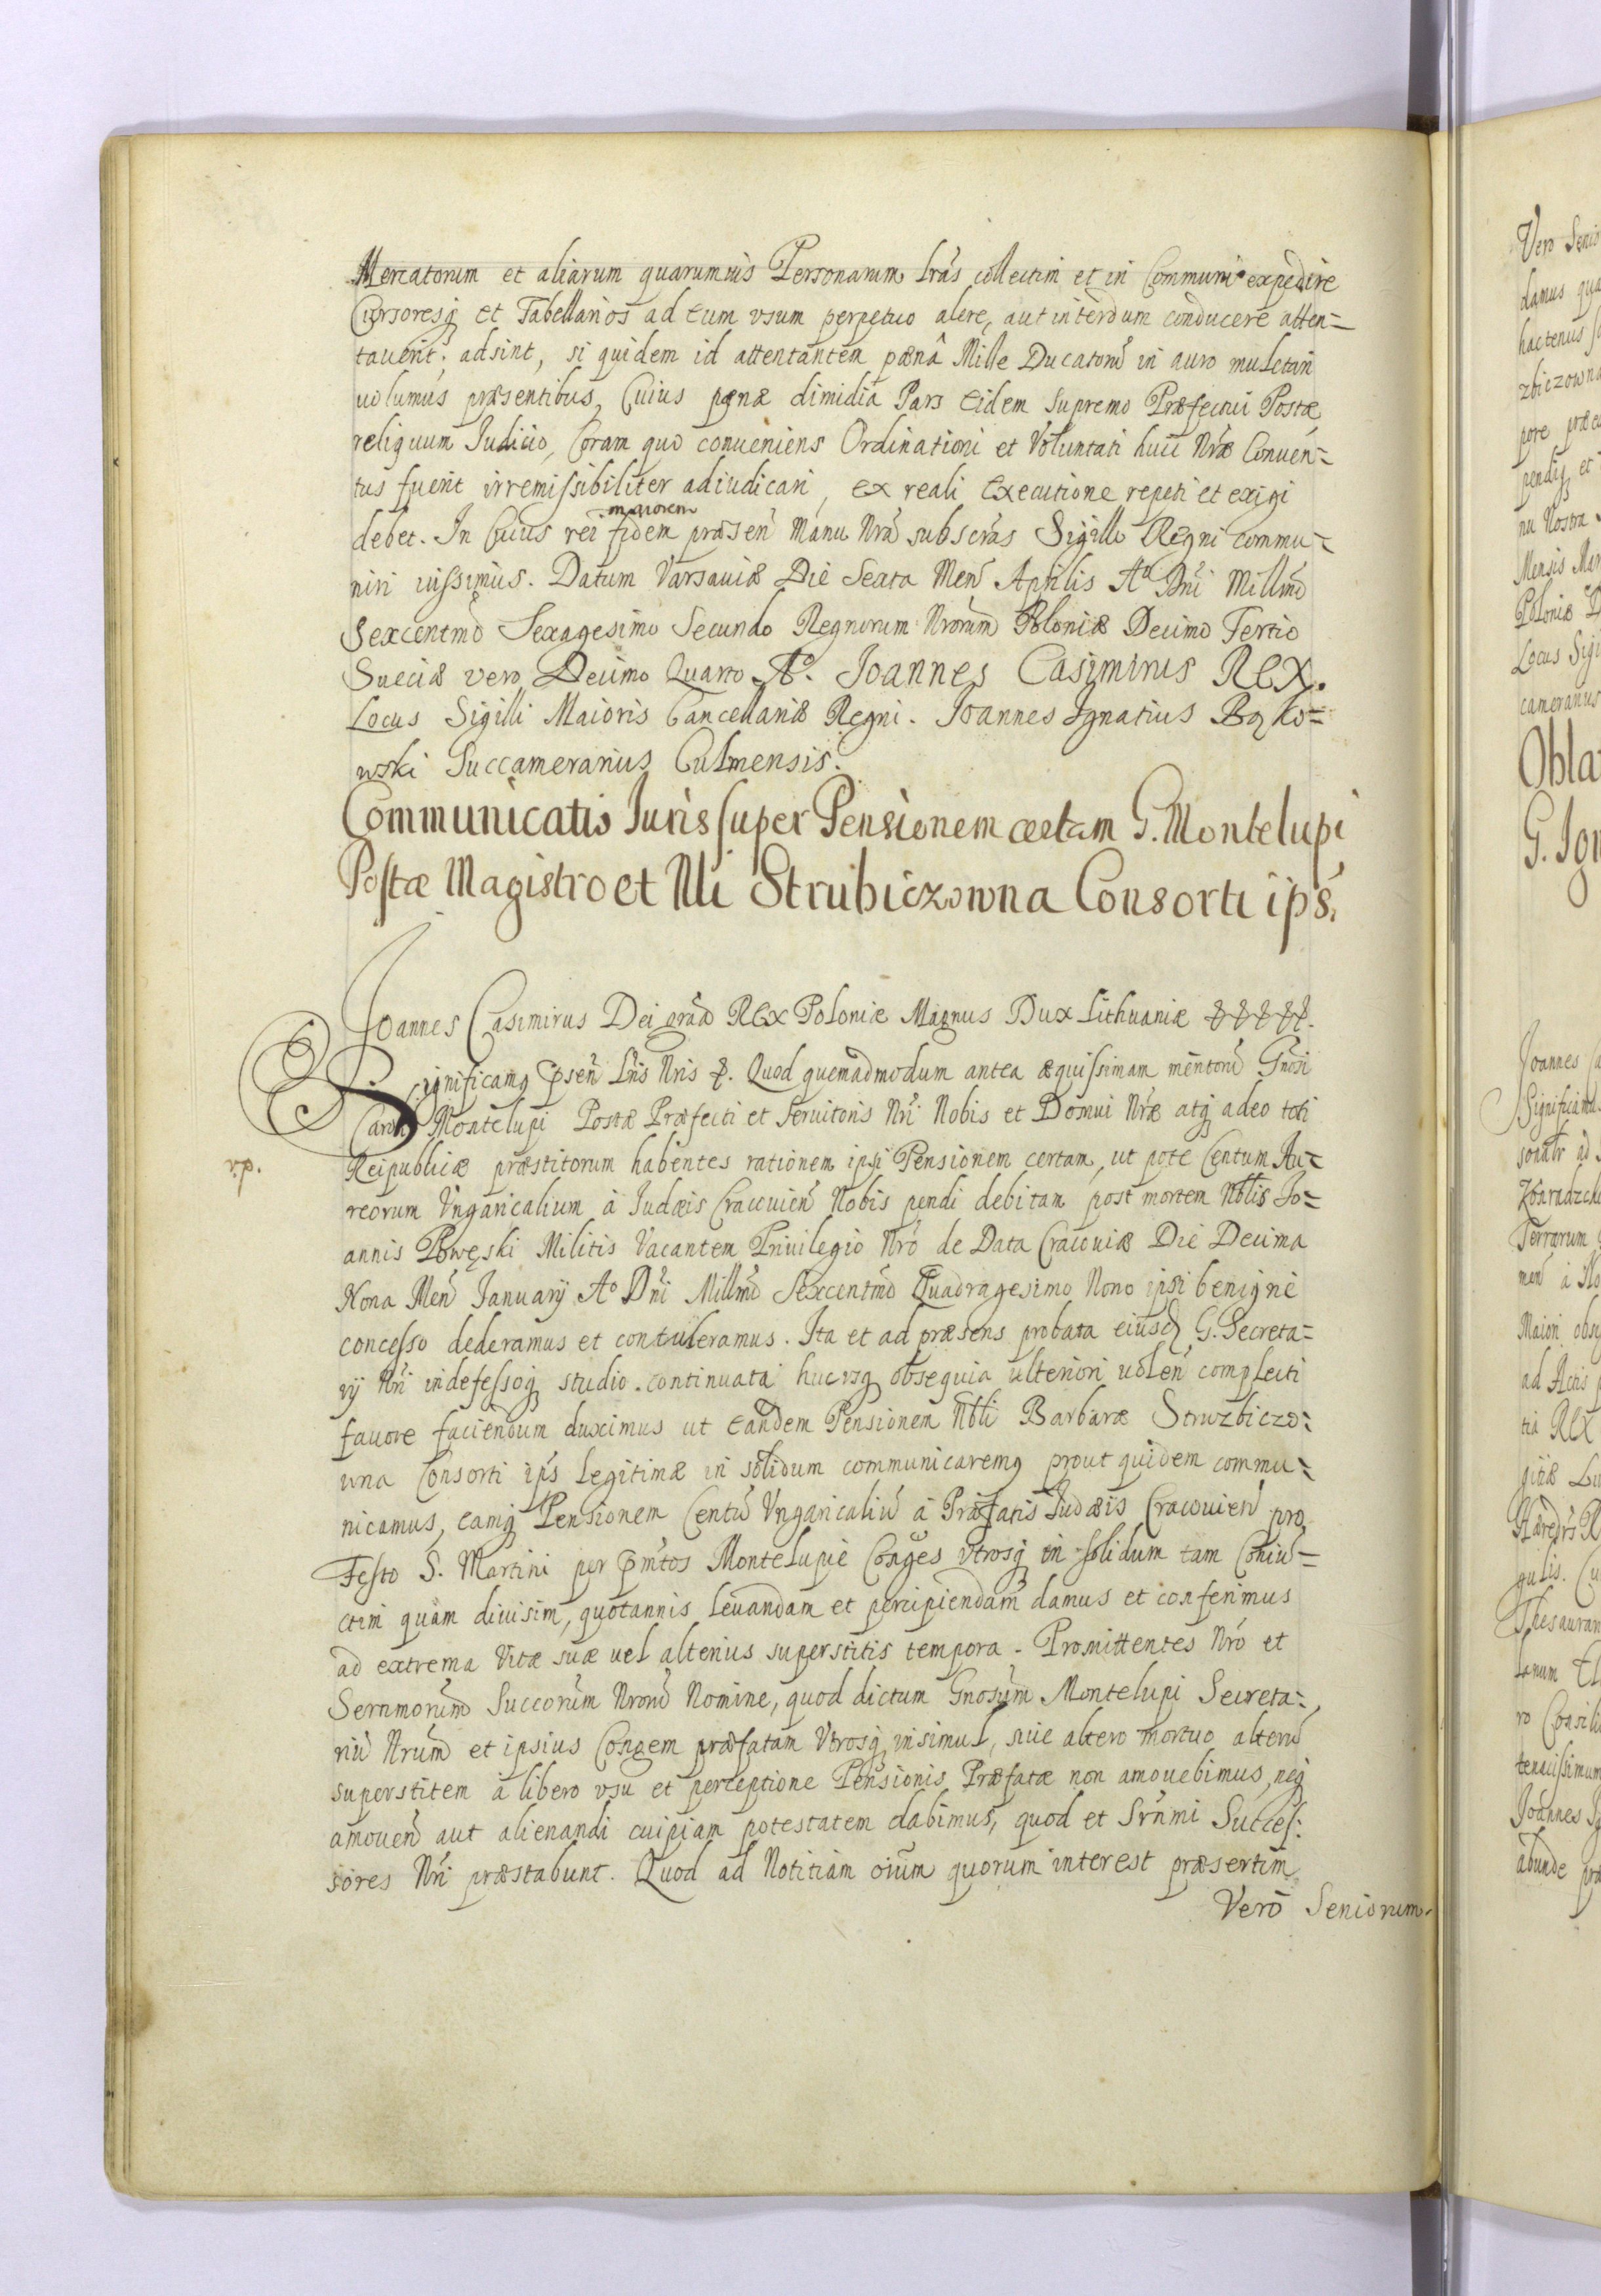 Mercatorum et aliarum quarumuis Personarum Lrãs collectim et in Communi expedire
Cursoresq et Tabellarios ad eum vsum perpetuo alere, aut interdum conducere atten=
tauerit; adsint, si quidem id attentantem pænâ Mille Ducatorũ in auro mulctari
uolumus præsentibus, Cuius pænæ dimidia Pars Eidem Supremo Præfectui Postæ,
reliquum Iudicio, Coram quo conueniens Ordinationi et Voluntati huic Nræ Conuen=
tus fuerit irremissibiliter adiudicari, ex reali executione repeti et exigi
debet. In Cuius rei maiorem fidem præsen̄ Manu Nrã subscrãs Sigillo Regni commu=
niri iussimus. Datum Varsauiæ Die Sexta Men̄ Aprilis Aº Dn̄i Millmõ
Sexcentmõ Sexagesimo Secundo Regnorum Nrorũm Poloniæ Decimo Tertio
Sueciæ vero Decimo Quarto Aº. Joannes Casimirus REX.
Locus Sigilli Maioris Cancellariæ Regni. Joannes Ignatius Bąko=
wski Succamerarius Culmensis.
Communicatio Iuris super Pensionem certam G. Montelupi
Postæ Magistro et Nli Strubiczowna Consorti ips.
Joannes Casimirus Dei grãa REX Poloniæ Magnus Dux Lithuaniæ
Significamq p̄sen̄ Lris Nris Quod quemadmodum antea æquissimam meritorũ Gnosi
Caroli Montelupi Postæ Præfecti et Seruitoris Nri Nobis et Domui Nræ atq adeo toti
v.p.
Reipublicæ præstitorum habentes rationem ipsi Pensionem certam, ut pote Centum Au=
reorum Vngaricalium à Judæis Cracouien̄ Nobis pendi debitam post mortem Nblis Jo=
annis Powęski Militis Vacantem Priuilegio Nro de Data Cracouiæ Die Decima
Nona Men̄ January Aº Dn̄i Millmõ Sexcentmõ Quadragesimo Nono ipsi benigne
concesso dederamus et contuleramus. Ita et ad præsens probata eiusd G. Secreta=
rij Nri indefessoq studio continuata hucvsq obsequia ulteriori uolen̄ complecti
fauore faciendum duximus ut eandem Pensionem Nbli Barbaræ Struzbiczo=
wna Consorti ips̃ Legitimæ in solidum communicaremq prout quidem commu=
nicamus, eamq Pensionem Centũ Vngaricaliũ à Præfatis Judæis Cracouien̄ pro
Festo S. Martini per p̄mtos Montelupie Conges vtrosq in solidum tam Coniun=
ctim quam diuisim, quotannis leuandam et percipiendam damus et conferimus
ad extrema Vitæ suæ uel alterius superstitis tempora. Promittentes Nro et
Sernmorũm Succorũm Nrorũ Nomine, quod dictum Gnosũm Montelupi Secreta=
riũ Nrum et ipsius Congem præfatam Vtrosq insimul, siue altero mortuo alterũ
superstitem à libero vsu et perceptione Pensionis Præfatæ non amouebimus, neq
amouen̄ aut alienandi cuipiam potestatem dabimus, quod et Srnmi Succes:
sores Nri præstabunt. Quod ad Notitiam oium quorum interest præsertim
Vero Seniorum.